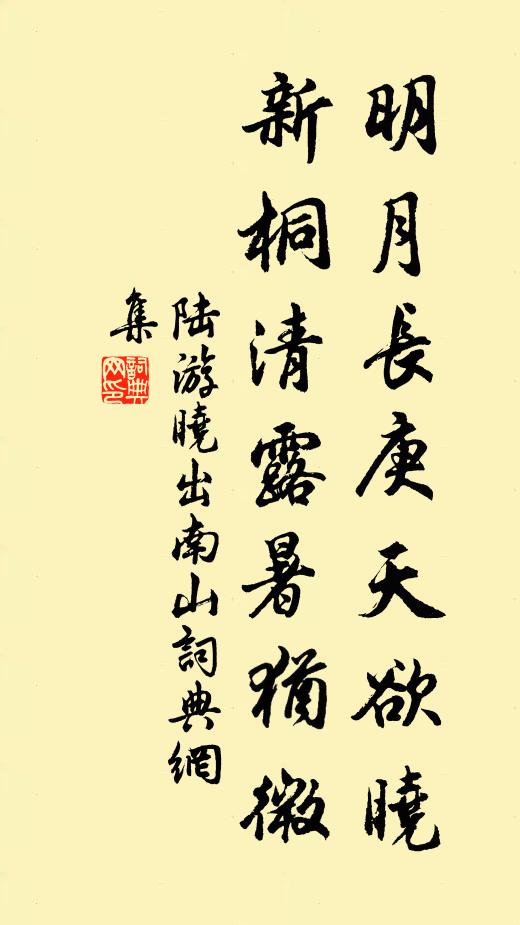 明月長庚天欲曉
新桐清露暑猶微
陆游曉出南山詞典網
集
詞典
网印